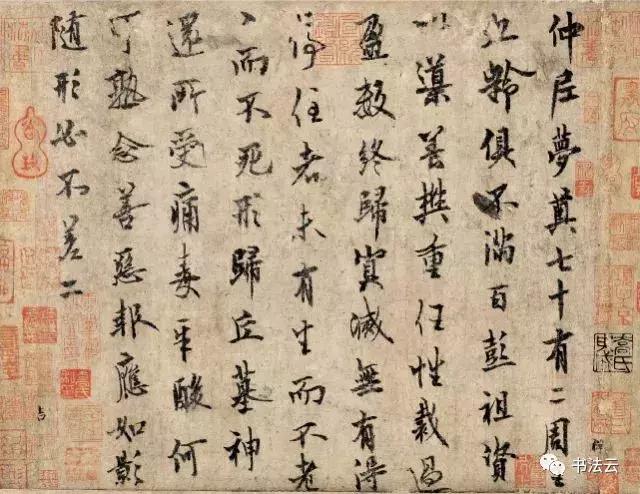 仲尼夢奠七十有二周王
九齡俱不滿百彭祖資
以導養樊重任性裁過
盈數終歸冥滅無有得
停住者未有生而不老
〻而不死形歸丘墓神
還所受痛毒辛酸何
可熟念善惡報應如影
隨形必不差二
书法云